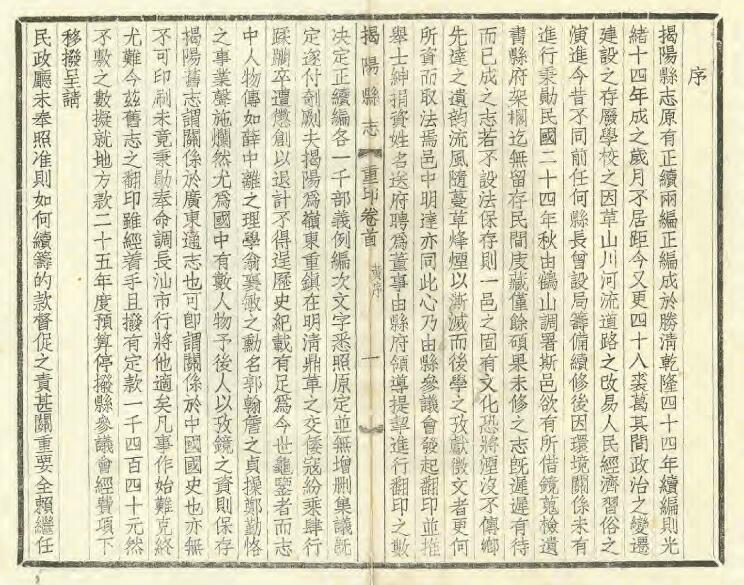 序
揭陽縣志原有正續兩編正編成於勝清乾隆四十四年續編則光
緒十四年成之歲月不居距今又更四十八裘葛其間政治之變遷
建設之存廢學校之因革山川河流道路之改易人民經濟習俗之
演進今昔不同前任何縣長曾設局籌備續修後因環境關係未有
進行秉勛民國二十四年秋由鶴山調署斯邑欲有所借鏡蒐檢遺
書縣府架櫊迄無留存民間庋藏僅餘碩果未修之志旣遲遲有待
而已成之志若不設法保存則一邑之固有文化恐將湮沒不傳鄉
先達之遺韵流風隨蔓草烽煙以澌滅而後學之攷獻徵文者更何
所資而取法焉邑中明達亦同此心乃由縣參議會發起翻印並推
舉士紳捐資姓名送府聘爲董事由縣府領導提挈進行翻印之數
揭陽縣志
重印卷首
序
一
決定正續編各一千部義例編次文字悉照原定並無增刪集議旣
定遂付剞劂夫揭陽爲嶺東重鎮在明清鼎革之交倭寇紛乘肆行
蹂躪卒遭懲創以退計不得逞歷史紀載有足爲今世龜鑒者而志
中人物傳如薛中離之理學翁襄敏之勳名郭翰詹之貞操鄭勤恪
之事業聲施爛然尤爲國中有數人物予後人以攷鏡之資則保存
揭陽舊志謂關係於廣東通志也可卽謂關係於中國國史也亦無
不可印刷未竟秉勛奉命調長汕市行將他適矣凡事作始難克終
尤難今玆舊志之翻印雖經着手且撥有定款一千四百四十元然
不敷之數擬就地方款二十五年度預算停撥縣參議會經費項下
移撥呈請
民政廳未奉照准則如何續籌的款督促之責甚關重要全賴繼任